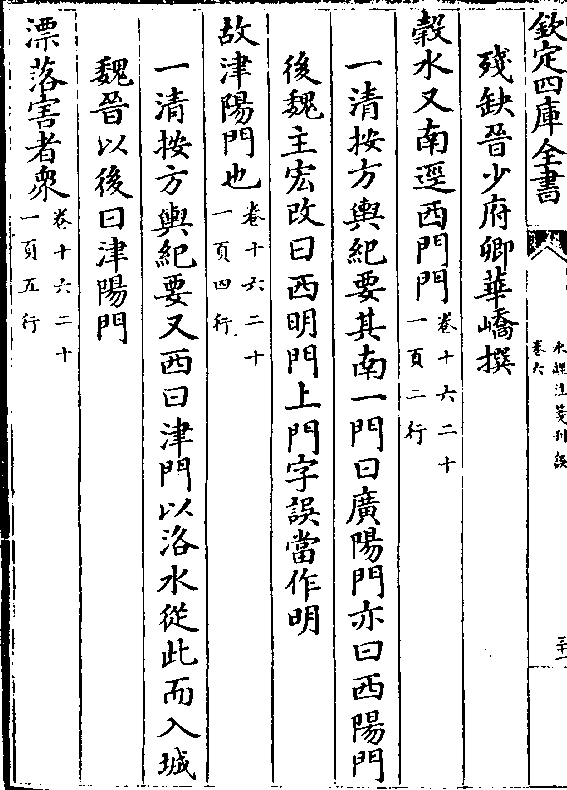 欽定四庫全書
水經注箋刊誤
卷六
二十一
殘缺晉少府卿華嶠撰
榖水又南逕西門門卷十六二十
一頁二行
一清按方輿紀要其南一門曰廣陽門亦曰西陽門
後魏主宏改曰西明門上門字誤當作明
故津陽門也卷十六二十
一頁四行
一清按方輿紀要又西曰津門以洛水從此而入城
魏晉以後曰津陽門
漂落害者衆卷十六二十
一頁五行